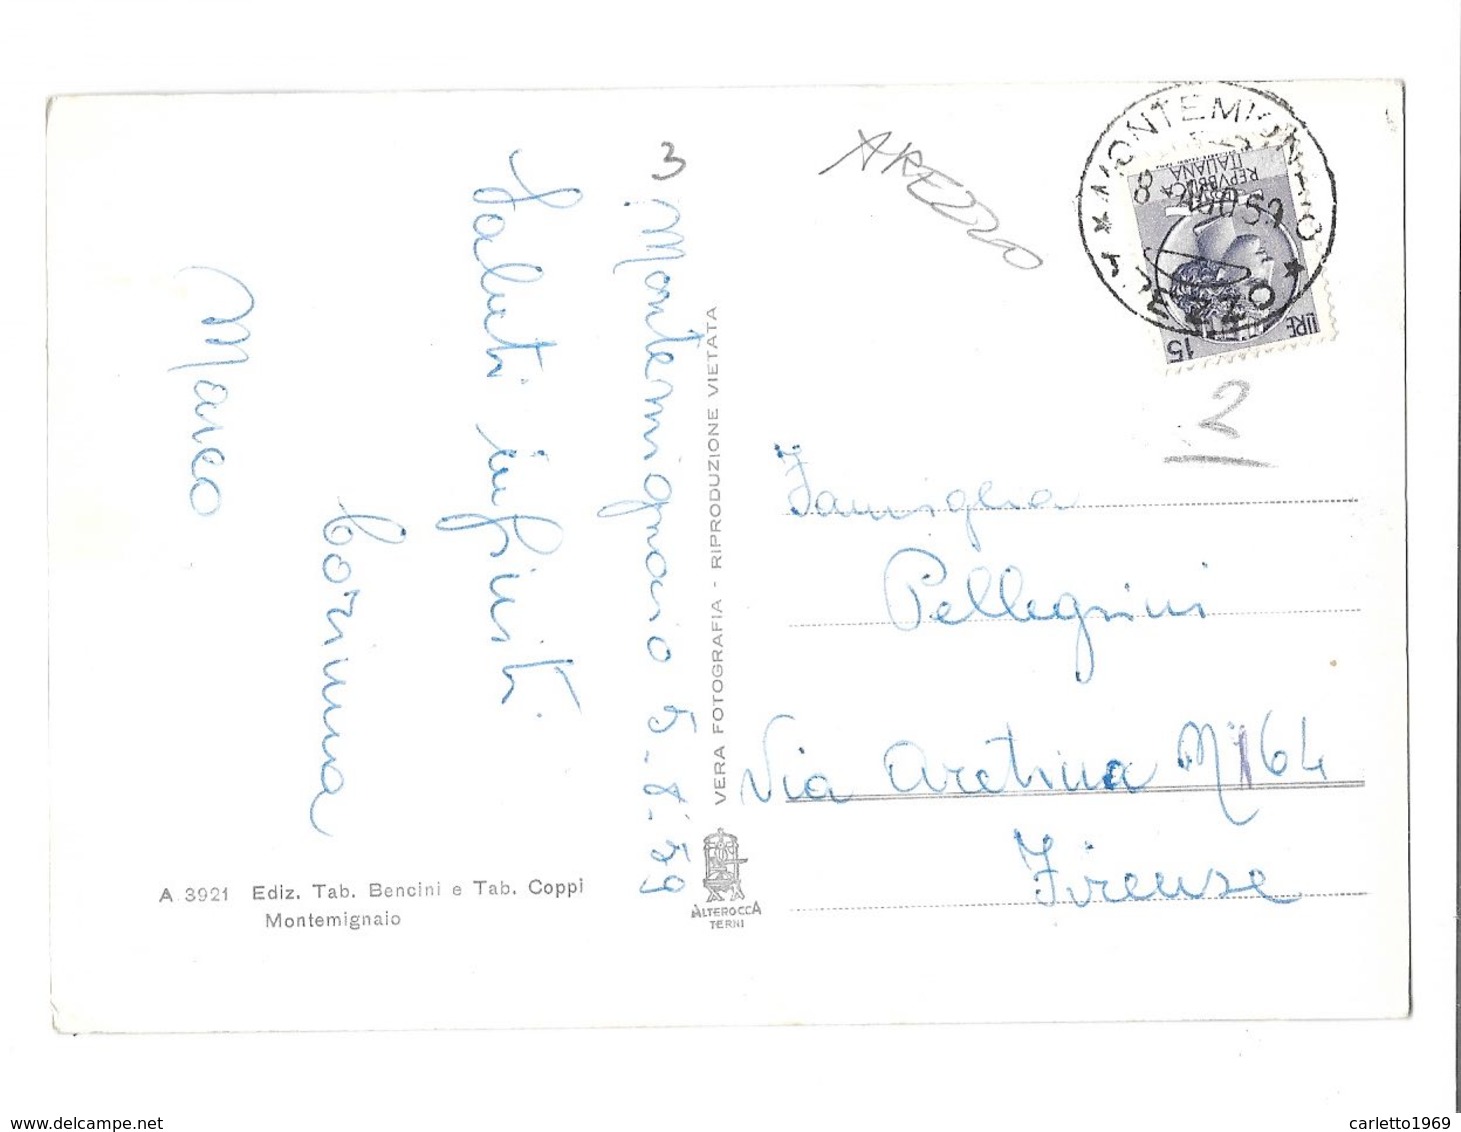 3
Montemignaio 5.8.59
Saluti infiniti
Corinna
Marco
A 3921 Ediz. Tab. Bencini e Tab. Coppi
Montemignaio
VERA FOTOGRAFIA - RIPRODUZIONE VIETATA
ALTEROCCA
TERNI
AREZZO
REPVBBLICA
ITALIANA
LIRE 15
2
Famiglia
Pellegrini
Via Aretina N 164
Firenze
www.delcampe.net
carletto1969